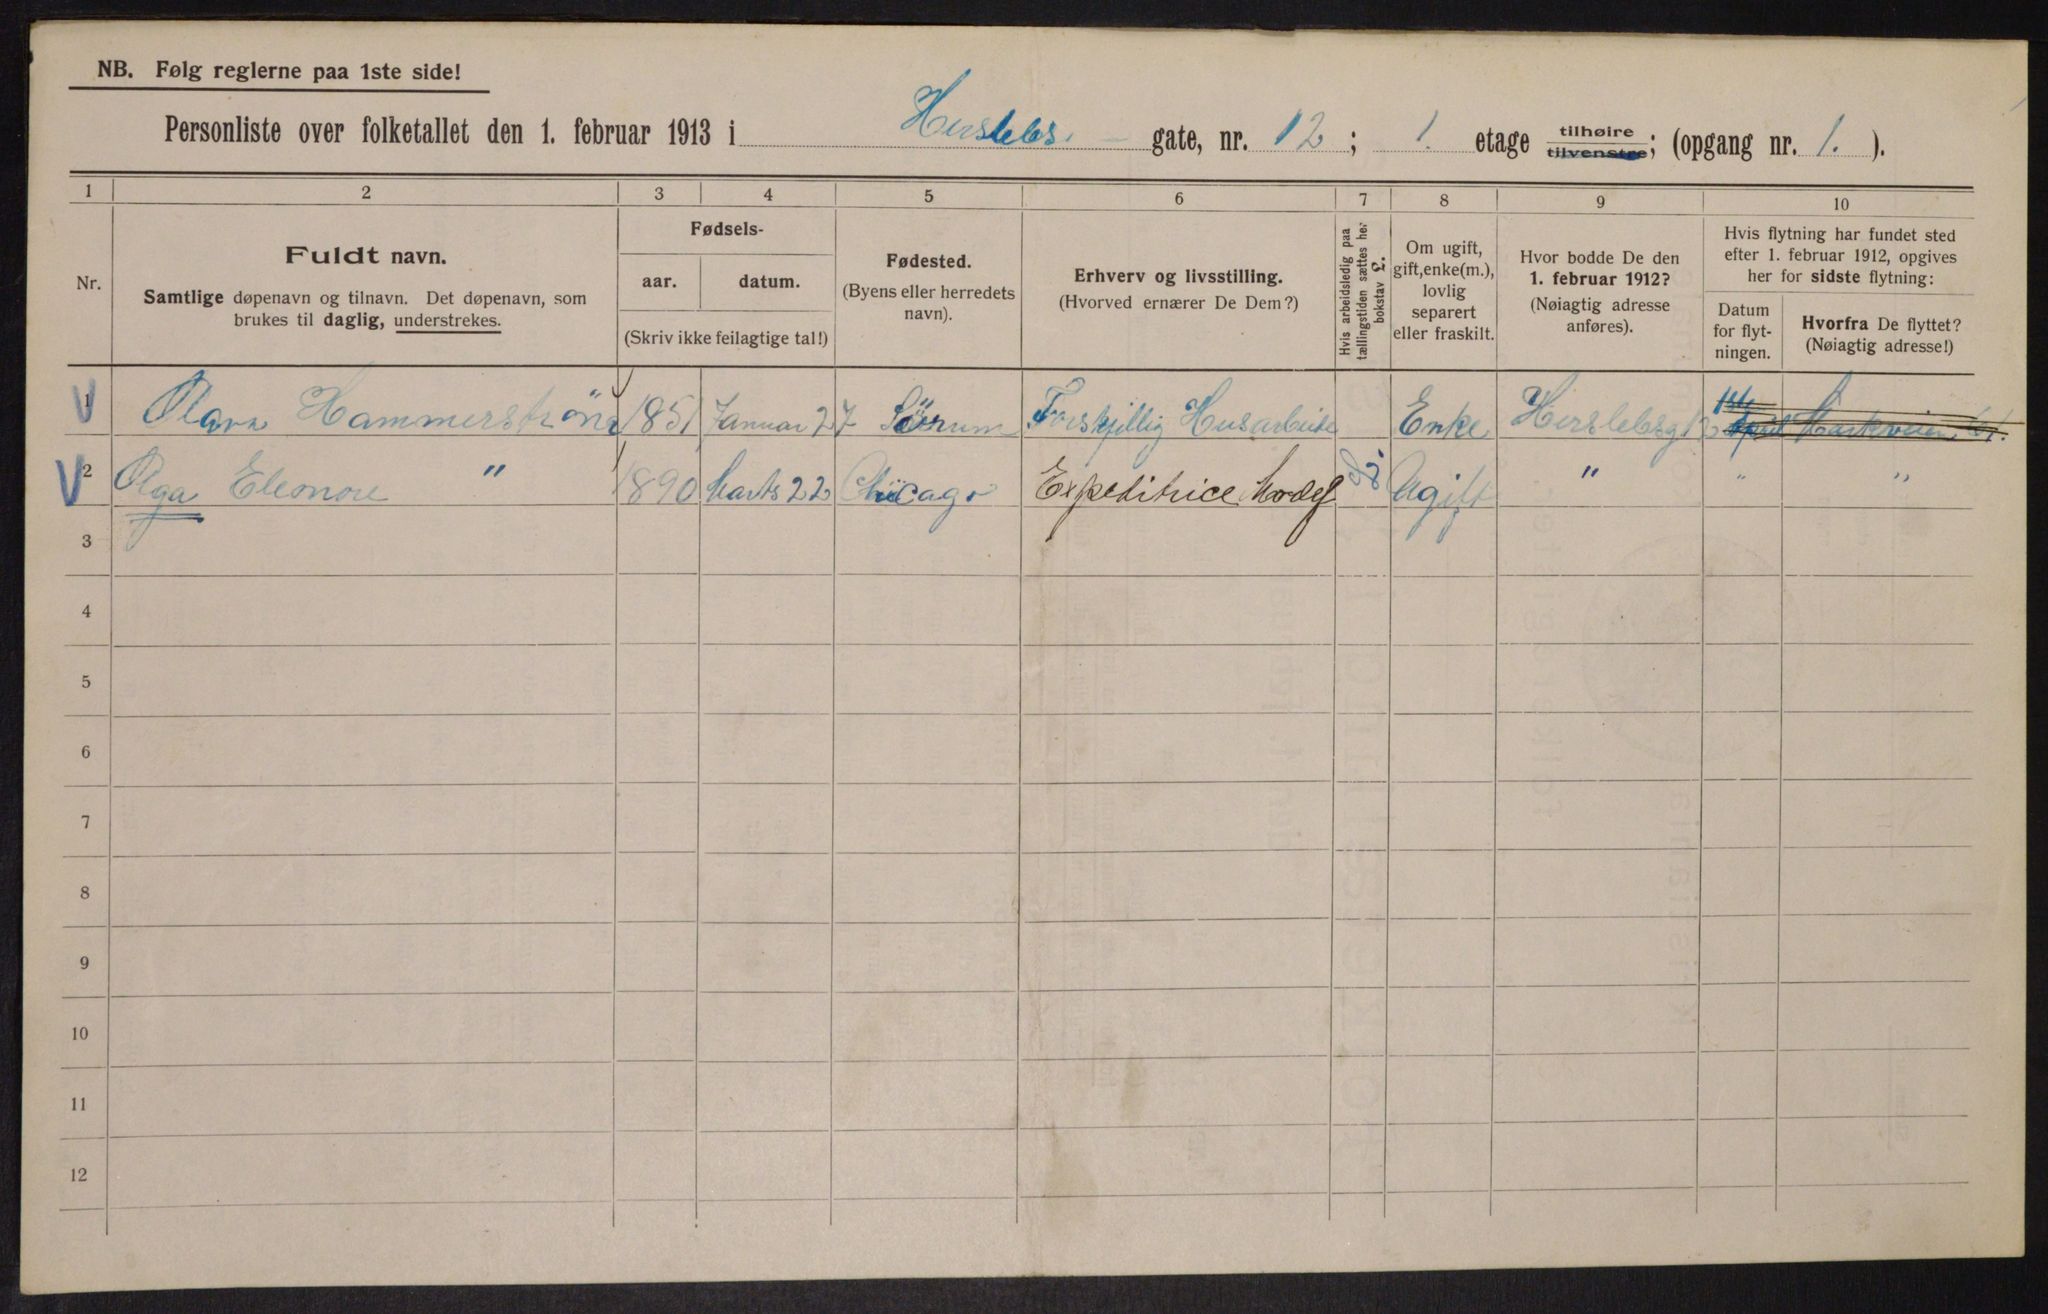 NB. Følg reglerne paa 1ste side!
Personliste over folketallet den 1. februar 1913 i Herslebs gate, nr. 12; 1. etage tilhøire tilvenstre; (opgang nr. 1.).
1 2 3 4 5 6 7 8 9 10
Nr.
Fuldt navn.
Samtlige døpenavn og tilnavn. Det døpenavn, som
brukes til daglig, understrekes.
Fødsels-
aar. datum.
(Skriv ikke feilagtige tal!)
Fødested.
(Byens eller herredets
navn).
Erhverv og livsstilling.
(Hvorved ernærer De Dem?)
Hvis arbeidsledig paa
tællingstiden sættes her
bokstav L.
Om ugift,
gift, enke(m.),
lovlig
separert
eller fraskilt.
Hvor bodde De den
1. februar 1912?
(Nøiagtig adresse
anføres).
Hvis flytning har fundet sted
efter 1. februar 1912, opgives
her for sidste flytning:
Datum
for flyt-
ningen.
Hvorfra De flyttet?
(Nøiagtig adresse!)
1 Hammerström 1851 Januar 27 Sörum Forskjellig Husarbeide Enke Herslebsg 12 1ste April Markveien
2 Olga Eleonore " 1890 Marts 22 Chicago Expeditrice Ugift " " "
3
4
5
6
7
8
9
10
11
12